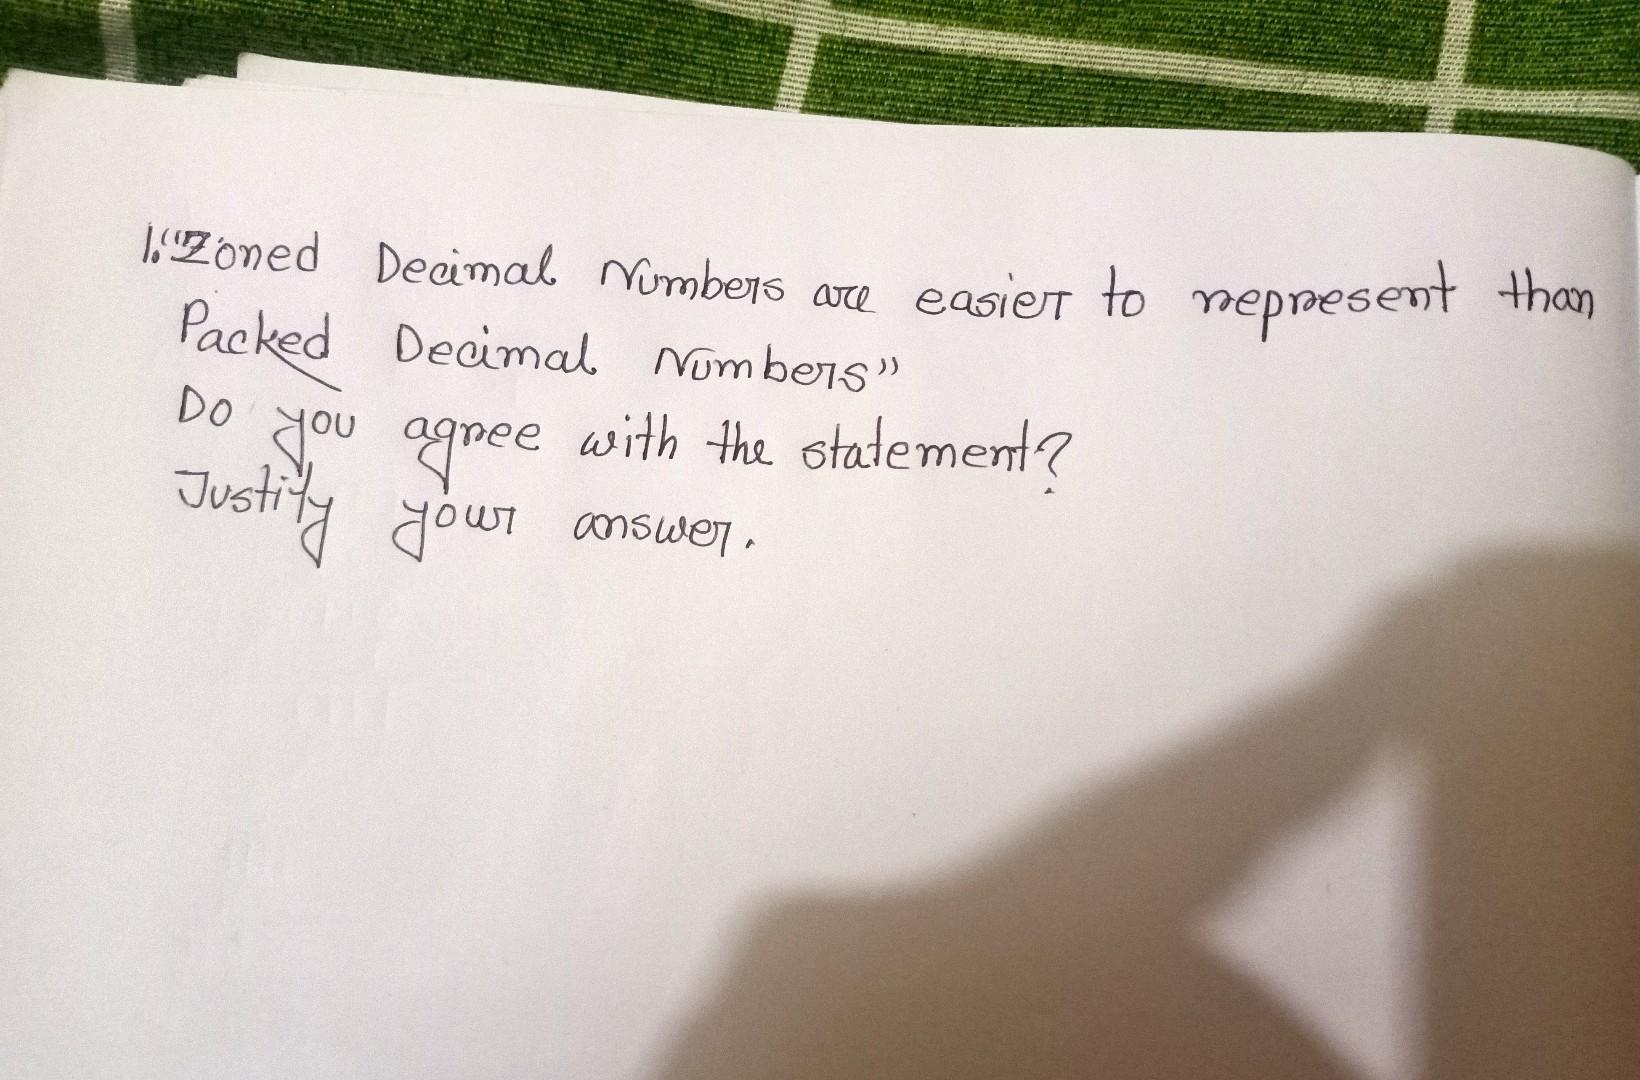 1. "Zoned Decimal Numbers are easier to represent than
Packed Decimal Numbers"
Do you agree with the statement?
Justify your answer.